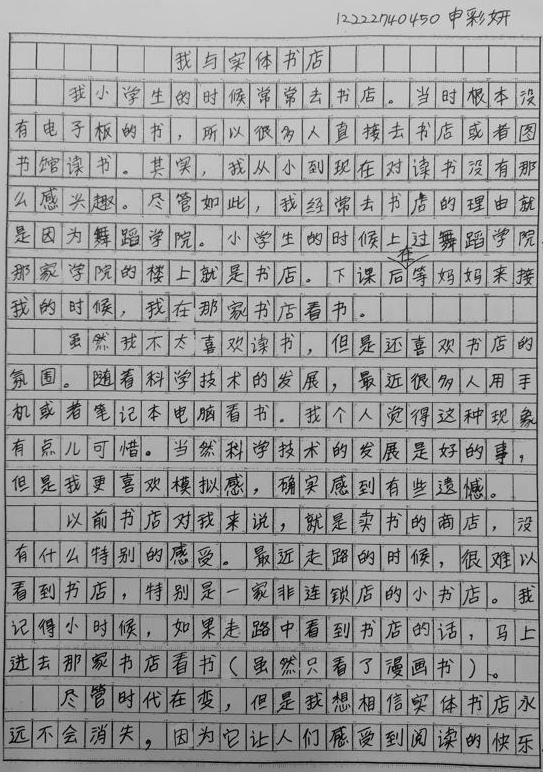 12222740450 申彩妍
我与实体书店
我小学生的时候常常去书店。当时根本没
有电子板的书，所以很多人直接去书店或者图
书馆读书。其实，我从小到现在对读书没有那
么感兴趣。尽管如此，我经常去书店的理由就
是因为舞蹈学院。小学生的时候上过舞蹈学院，
那家学院的楼上就是书店。下课后在等妈妈来接
我的时候，我在那家书店看书。
虽然我不太喜欢读书，但是还喜欢书店的
氛围。随着科学技术的发展，最近很多人用手
机或者笔记本电脑看书。我个人觉得这种现象
有点儿可惜。当然科学技术的发展是好的事，
但是我更喜欢模拟感，确实感到有些遗憾。
以前书店对我来说，就是卖书的商店，没
有什么特别的感受。最近走路的时候，很难以
看到书店，特别是一家非连锁店的小书店。我
记得小时候，如果走路中看到书店的话，马上
进去那家书店看书（虽然只看了漫画书）。
尽管时代在变，但是我想相信实体书店永
远不会消失，因为它让人们感受到阅读的快乐